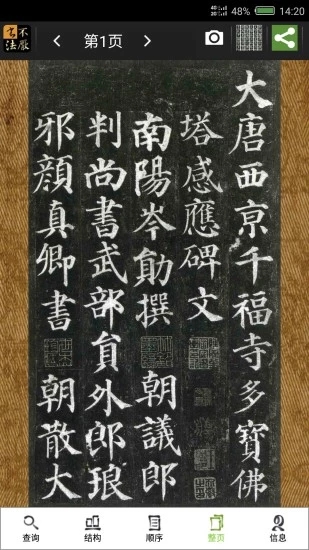 48% 14:20
不嚴書法
第1页
大唐西京千福寺多寶佛
塔感應碑文
南陽岑勛撰 朝議郎
判尚書武部貟外郎琅
邪顔真卿書 朝散大
查询 结构 顺序 整页 信息